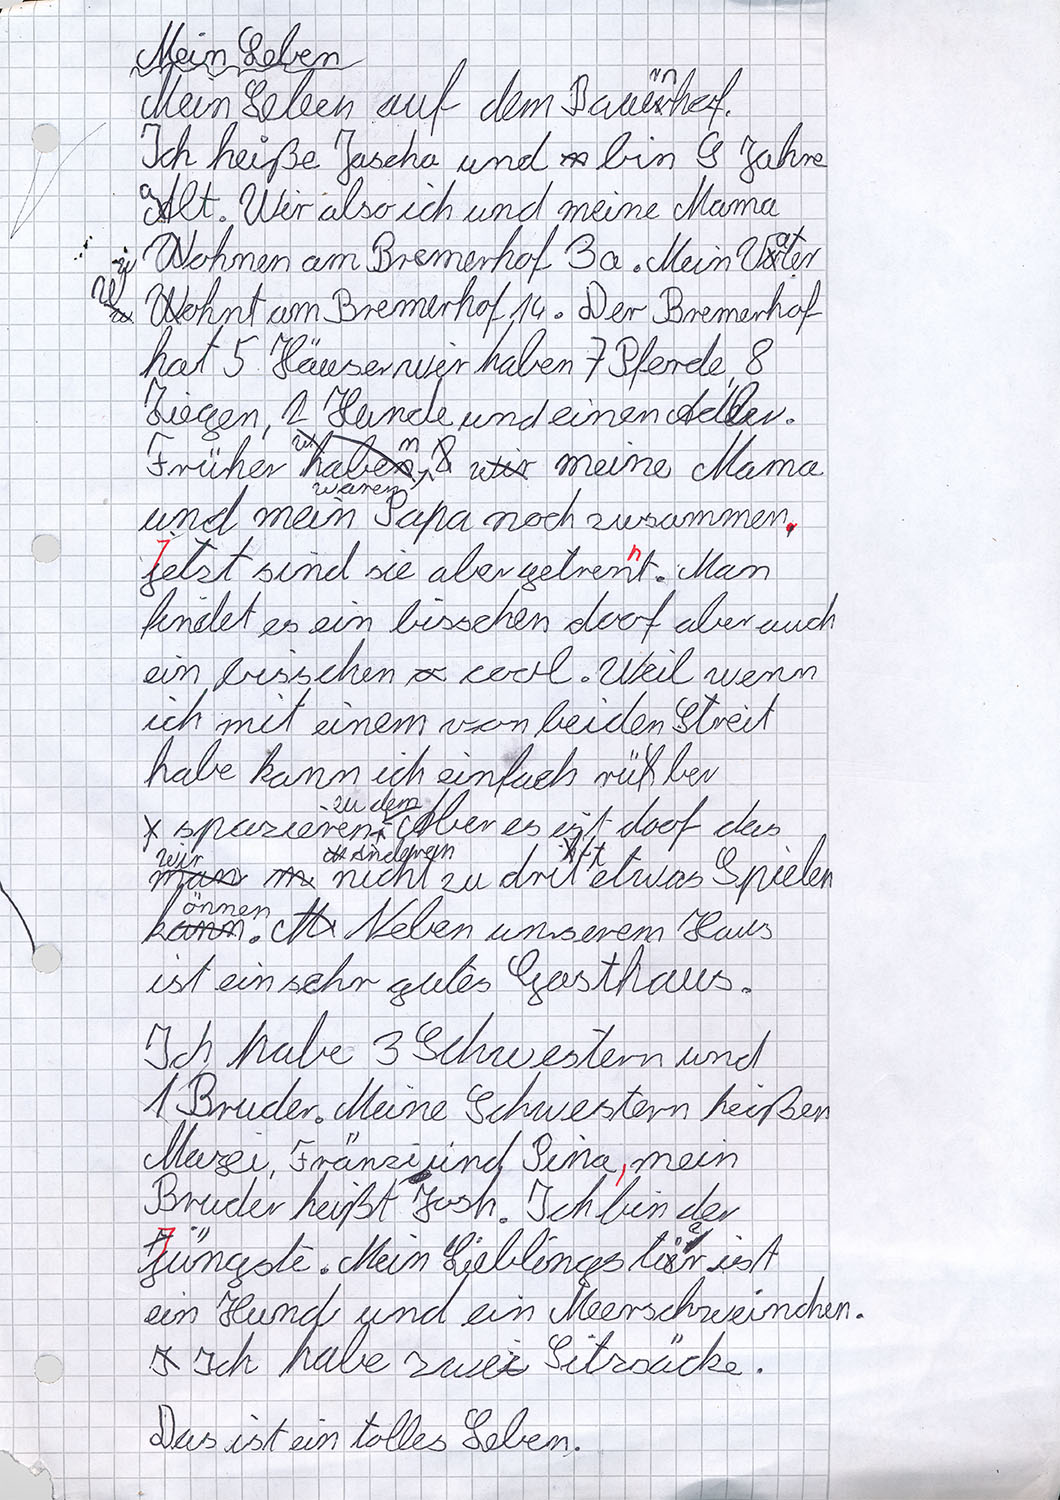 Mein Leben
Mein Leben auf dem Bauernhof.
Ich heiße Jascha und bin 9 Jahre
alt. Wir also ich und meine Mama
Wohnen am Bremerhof 3a. Mein Vater
Wohnt am Bremerhof 14. Der Bremerhof
hat 5 Häuser wir haben 7 Pferde, 8
Ziegen, 2 Hunde und einen Adler.
Früher waren meine Mama
und mein Papa noch zusammen.
Jetzt sind sie aber getrennt. Man
findet es ein bisschen doof aber auch
ein bisschen cool. Weil wenn
ich mit einem von beiden Streit
habe kann ich einfach rüber
zu dem anderen
spazieren. Aber es ist doof das
wir nicht zu dritt etwas Spielen
können. Neben unserem Haus
ist ein sehr gutes Gasthaus.
Ich habe 3 Schwestern und
1 Bruder. Meine Schwestern heißen
Marei, Fränzi und Pina, mein
Bruder heißt Josh. Ich bin der
Jüngste. Mein Lieblingstier ist
ein Hund und ein Meerschweinchen.
Ich habe zwei Sitzsäcke.
Das ist ein tolles Leben.